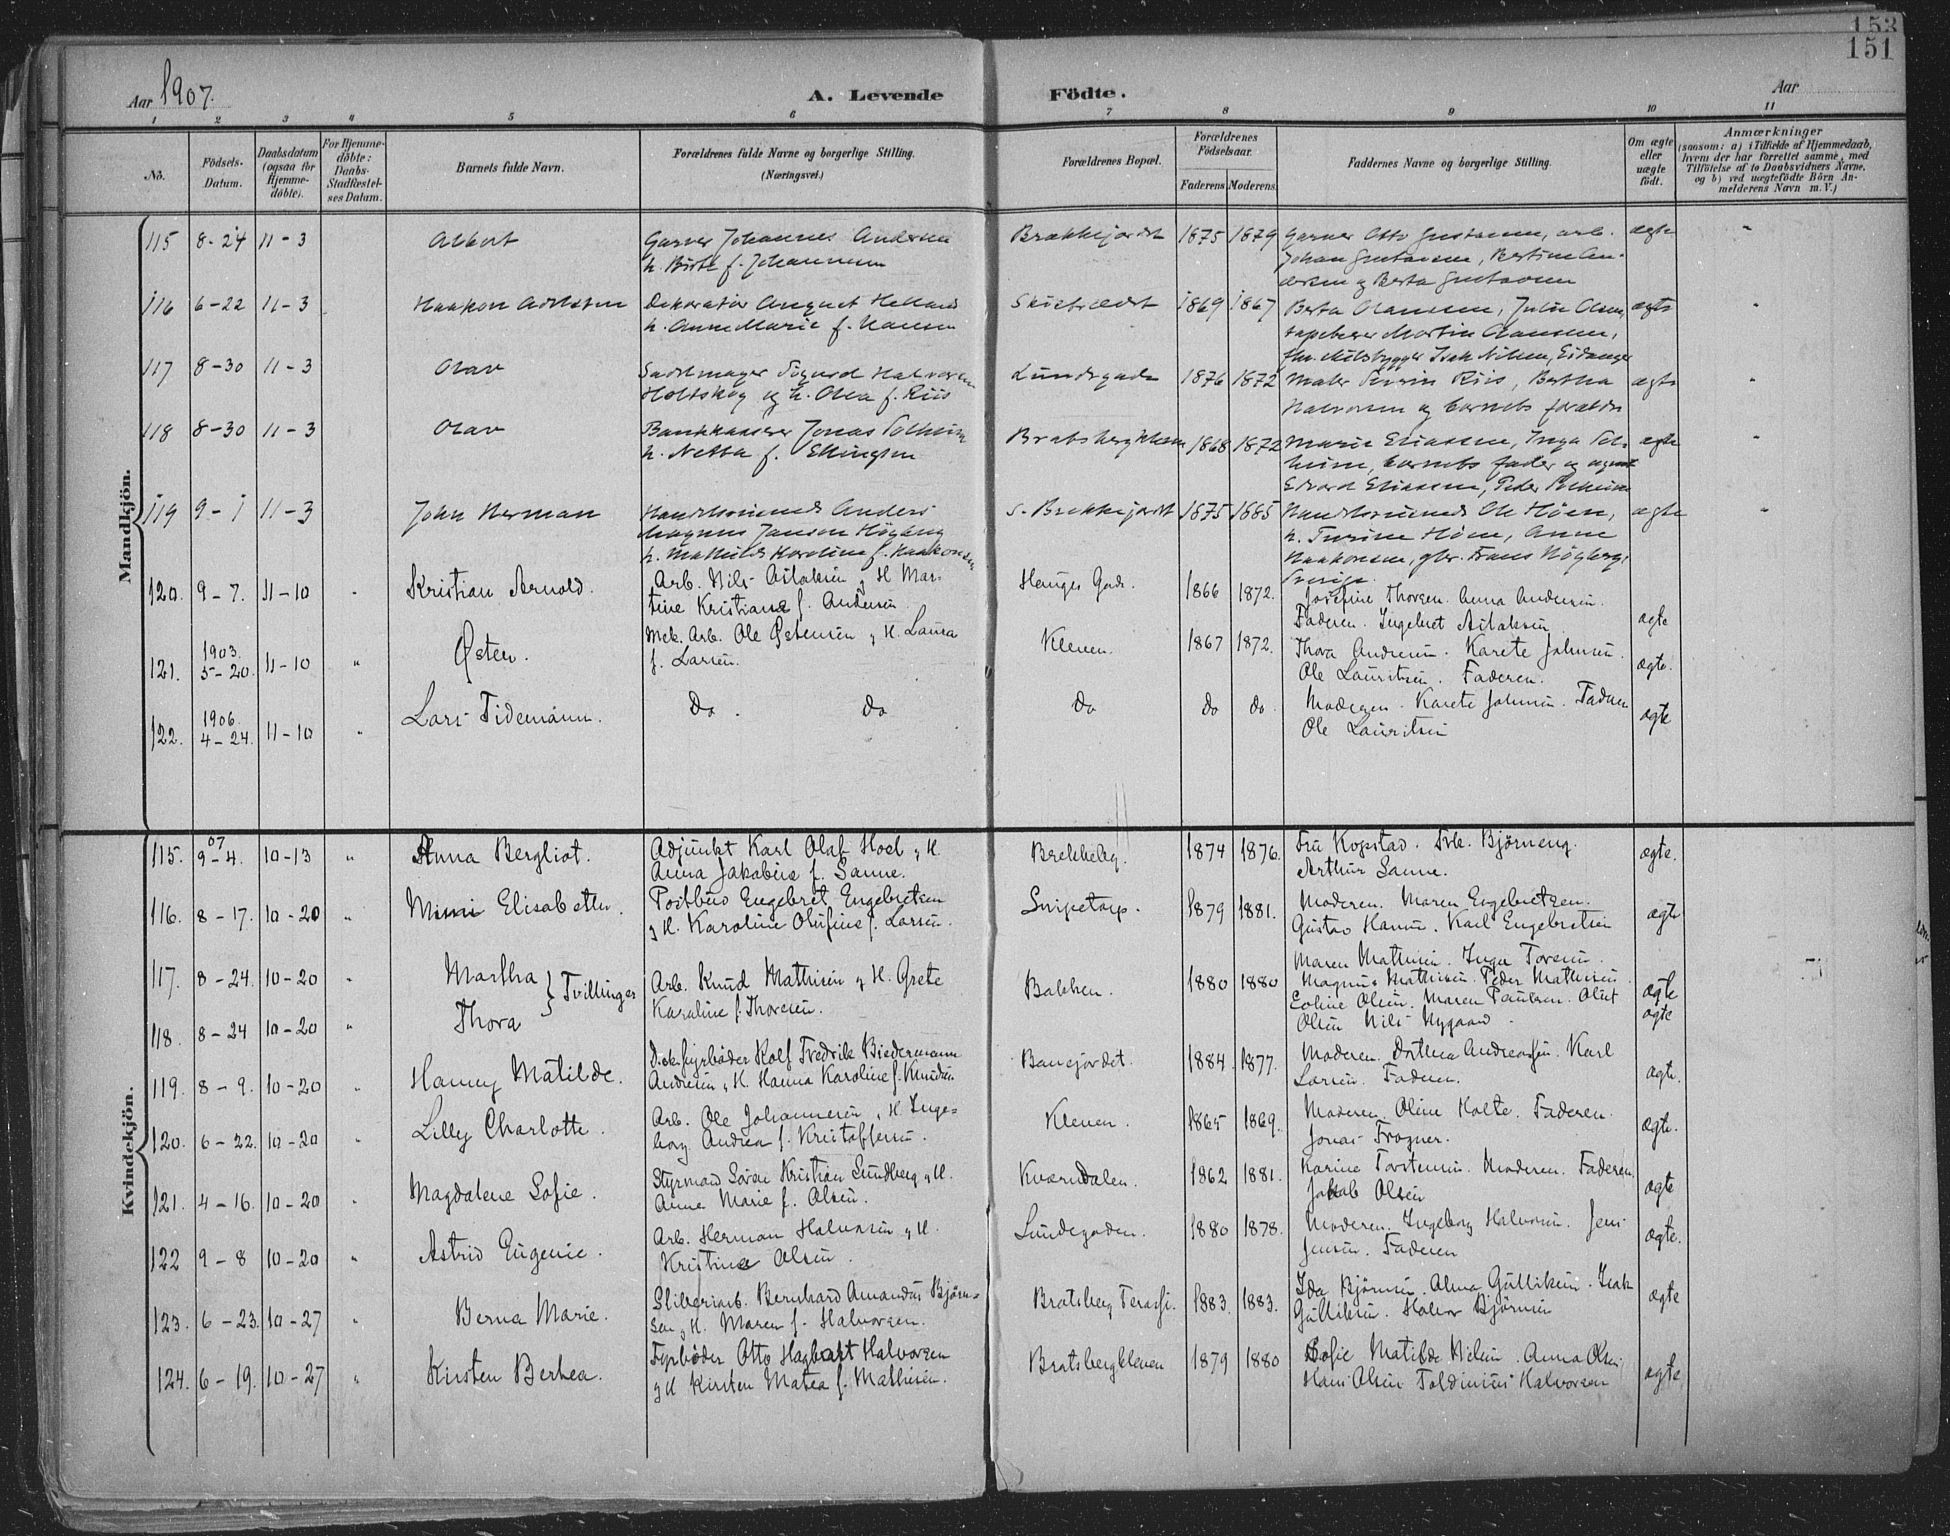 153
151
Aar 1907.
A. Levende Födte.
Aar
1 2 3 4 5 6 7 8 9 10 11
No.
Födsels-Datum.
Daabsdatum (ogsaa for Hjemme-döbte).
For Hjemme-döbte: Daabs-Stadfæstel-ses Datum.
Barnets fulde Navn.
Forældrenes fulde Navne og borgerlige Stilling. (Næringsvei.)
Forældrenes Bopæl.
Forældrenes Födselsaar.
Faderens Moderens.
Faddernes Navne og borgerlige Stilling.
Om ægte eller uægte födt.
Anmærkninger
(saasom: a) i Tilfælde af Hjemmedaab, hvem der har forrettet samme, med Tilföielse af to Daabsvidners Navne, og b) ved uægtefödte Börn An-melderens Navn m. V.)
Mandkjön.
115 8-24 11-3 Albert Garver Johannes Andersen Brækkejordet 1875 1879 Garver Otto Gustavsen, arb. ægte
h. Birte f. Johannesen Johan Gustavsen, Bertine An-
dersen og Berta Gustavsen
116 6-22 11-3 Haakon Adelsten Dekoratør August Helland 1869 1867 Berta Olaussen, Julie Olsen, ægte
h. Anne Marie f. Hansen tapetserer Martin Olaussen,
Isak Nilsen, Eidanger
117 8-30 11-3 Olav Sadelmager Sigurd Halvorsen Lundegade 1876 1872 Maler Severin Riis, Bertha ægte
Holtskog og h. Olea f. Riis Halvorsen og barnets forældre
118 8-30 11-3 Olav Bankkasserer Jonas Solheim Bratsbergkleven 1868 1872 Marie Eliassen, Inga Sol- ægte
h. Netta f. Ellingsen heim, barnets fader og agent
Edvard Eliassen, Peder Solheim
119 9-1 11-3 John Herman Handelsmand Anders s. Brekkejordet 1875 1885 Handelsmand Ole Høen, ægte
Magnus Janson Högberg h. Turine Høen, Anne
h. Mathilde Karoline f. Haakonsen Haakonsen, gbr. Frans Högberg,
Sverige.
120. 9-7. 11-10 Kristian Arnold. Arb. Nils Aslaksen, H. Mar- Hauges Gade. 1866 1872. Josefine Thorsen. Anna Andersen.
tine Kristiane f. Andersen. Faderen. Ingebret Aslaksen ægte
121. 1903. 5-20. 11-10 Østen. Mek. Arb. Ole Østensen, H. Laura Kleven. 1867 1872. Thora Andersen. Karete Johnsen.
f. Larsen. Ole Lauritsen. Faderen. ægte.
122. 1906. 4-24. 11-10 Lars Tidemann. Do. do do do do. Moderen. Karete Johnsen. Faderen ægte
Ole Lauritsen
Kvindekjön.
115. 07 9-4. 10-13 Anna Bergliot. Adjunkt Karl Olaf Hoel, H. Brekkeby. 1874 1876. Fru Kogstad. Frk. Bjørneng. ægte.
Anna Jakobine f. Sanne. Arthur Sanne.
116. 8-17. 10-20 Mimi Elisabeth. Postbud Engebret Engebretsen Snipetorp. 1879 1881. Moderen. Maren Engebretsen. ægte
, H. Karoline Olufine f. Larsen. Gustav Hansen. Karl Engebretsen
117. 8-24. 10-20 Martha } Tvillinger Arb. Knud Mathisen, H. Grete Bakken. 1880 1880 Maren Mathisen. Inga Toresen.
Karoline f. Thoresen. Magnus Mathisen. Peder Mathisen ægte
118. 8-24 10-20 Thora Eoline Olsen. Maren Paulsen. Oluf ægte
Olsen Nils Nygaard.
119. 8-9. 10-20 Hanny Matilde. Rolf Fredrik Biedermann Banejordet. 1884. 1877. Moderen. Dorthea Andreassen. Karl ægte.
Andresen, H. Hanna Karoline f. Knudsen Larsen. Faderen.
120. 6-22. 10-20 Lilly Charlotte. Arb. Ole Johannesen, H. Inge- Kleven. 1865 1869. Moderen. Oline Holte. Faderen. ægte.
borg Andrea f. Kristoffersen. Jonas Frogner.
121. 4-16. 10-20 Magdalene Sofie. Styrmand Søren Kristian Sundberg, H. Kværndalen. 1862 1881. Karine Torstensen. Moderen. Faderen. ægte
Anne Marie f. Olsen. Jakob Olsen
122 9-8 10-20 Astrid Eugenie. Arb. Herman Halvorsen, H. Lundegaden. 1880 1878. Moderen. Ingeborg Halvorsen. Jens ægte.
Kristine Olsen. Jensen. Faderen
123. 6-23. 10-27 Berna Marie. Sliberiarb. Bernhard Amandus Bjørn- Bratsberg Terasse. 1883. 1883. Ida Bjørnsen. Alma Gulliksen. Isak ægte
sen, H. Maren f. Halvorsen. Gulliksen. Halvor Bjørnsen
124. 6-19. 10-27 Kirsten Berthea. Fyrbøder Otto Hagbart Halvorsen Bratsbergkleven 1879 1880 Sofie Matilde Nilsen. Anna Olsen. ægte
, H Kirsten Matea f. Mathisen. Hans Olsen Halvorsen